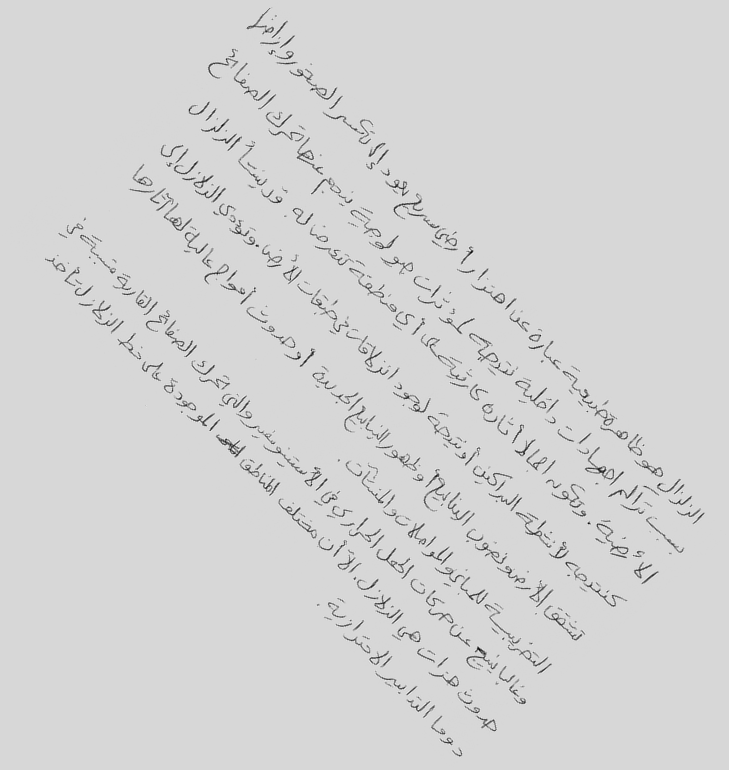 الزلزال هو ظاهرة طبيعية عبارة عن اهتزاز أرضي سريع يعود إلى تكسر الصخور وإزاحتها
بسبب تراكم اجهادات داخلية نتيجة لمؤثرات جيولوجية ينجم عنها تحرك الصفائح
الأرضية. وتكون اجمالا أثاره كارثية على أي منطقة تتعرض له. قد ينشأ الزلزال
كنتيجة لأنشطة البراكين أو نتيجة لوجود انزلاقات في طبقات الأرض. وتؤدي الزلازل إلى
تشقق الأرض ونضوب الينابيع أو ظهور الينابيع الجديدة أو حدوث أمواج عالية لها آثارها
التخريبية للمباني والمواصلات والمنشآت.
وغالبا ينتج عن حركات الحمل الحراري في الأستينوسفير والتي تحرك الصفائح القارية متسببة في
حدوث هزات هي الزلازل. الا أن مختلف المناطق الموجودة على خط الزلازل تأخذ
دوما التدابير الاحترازية.